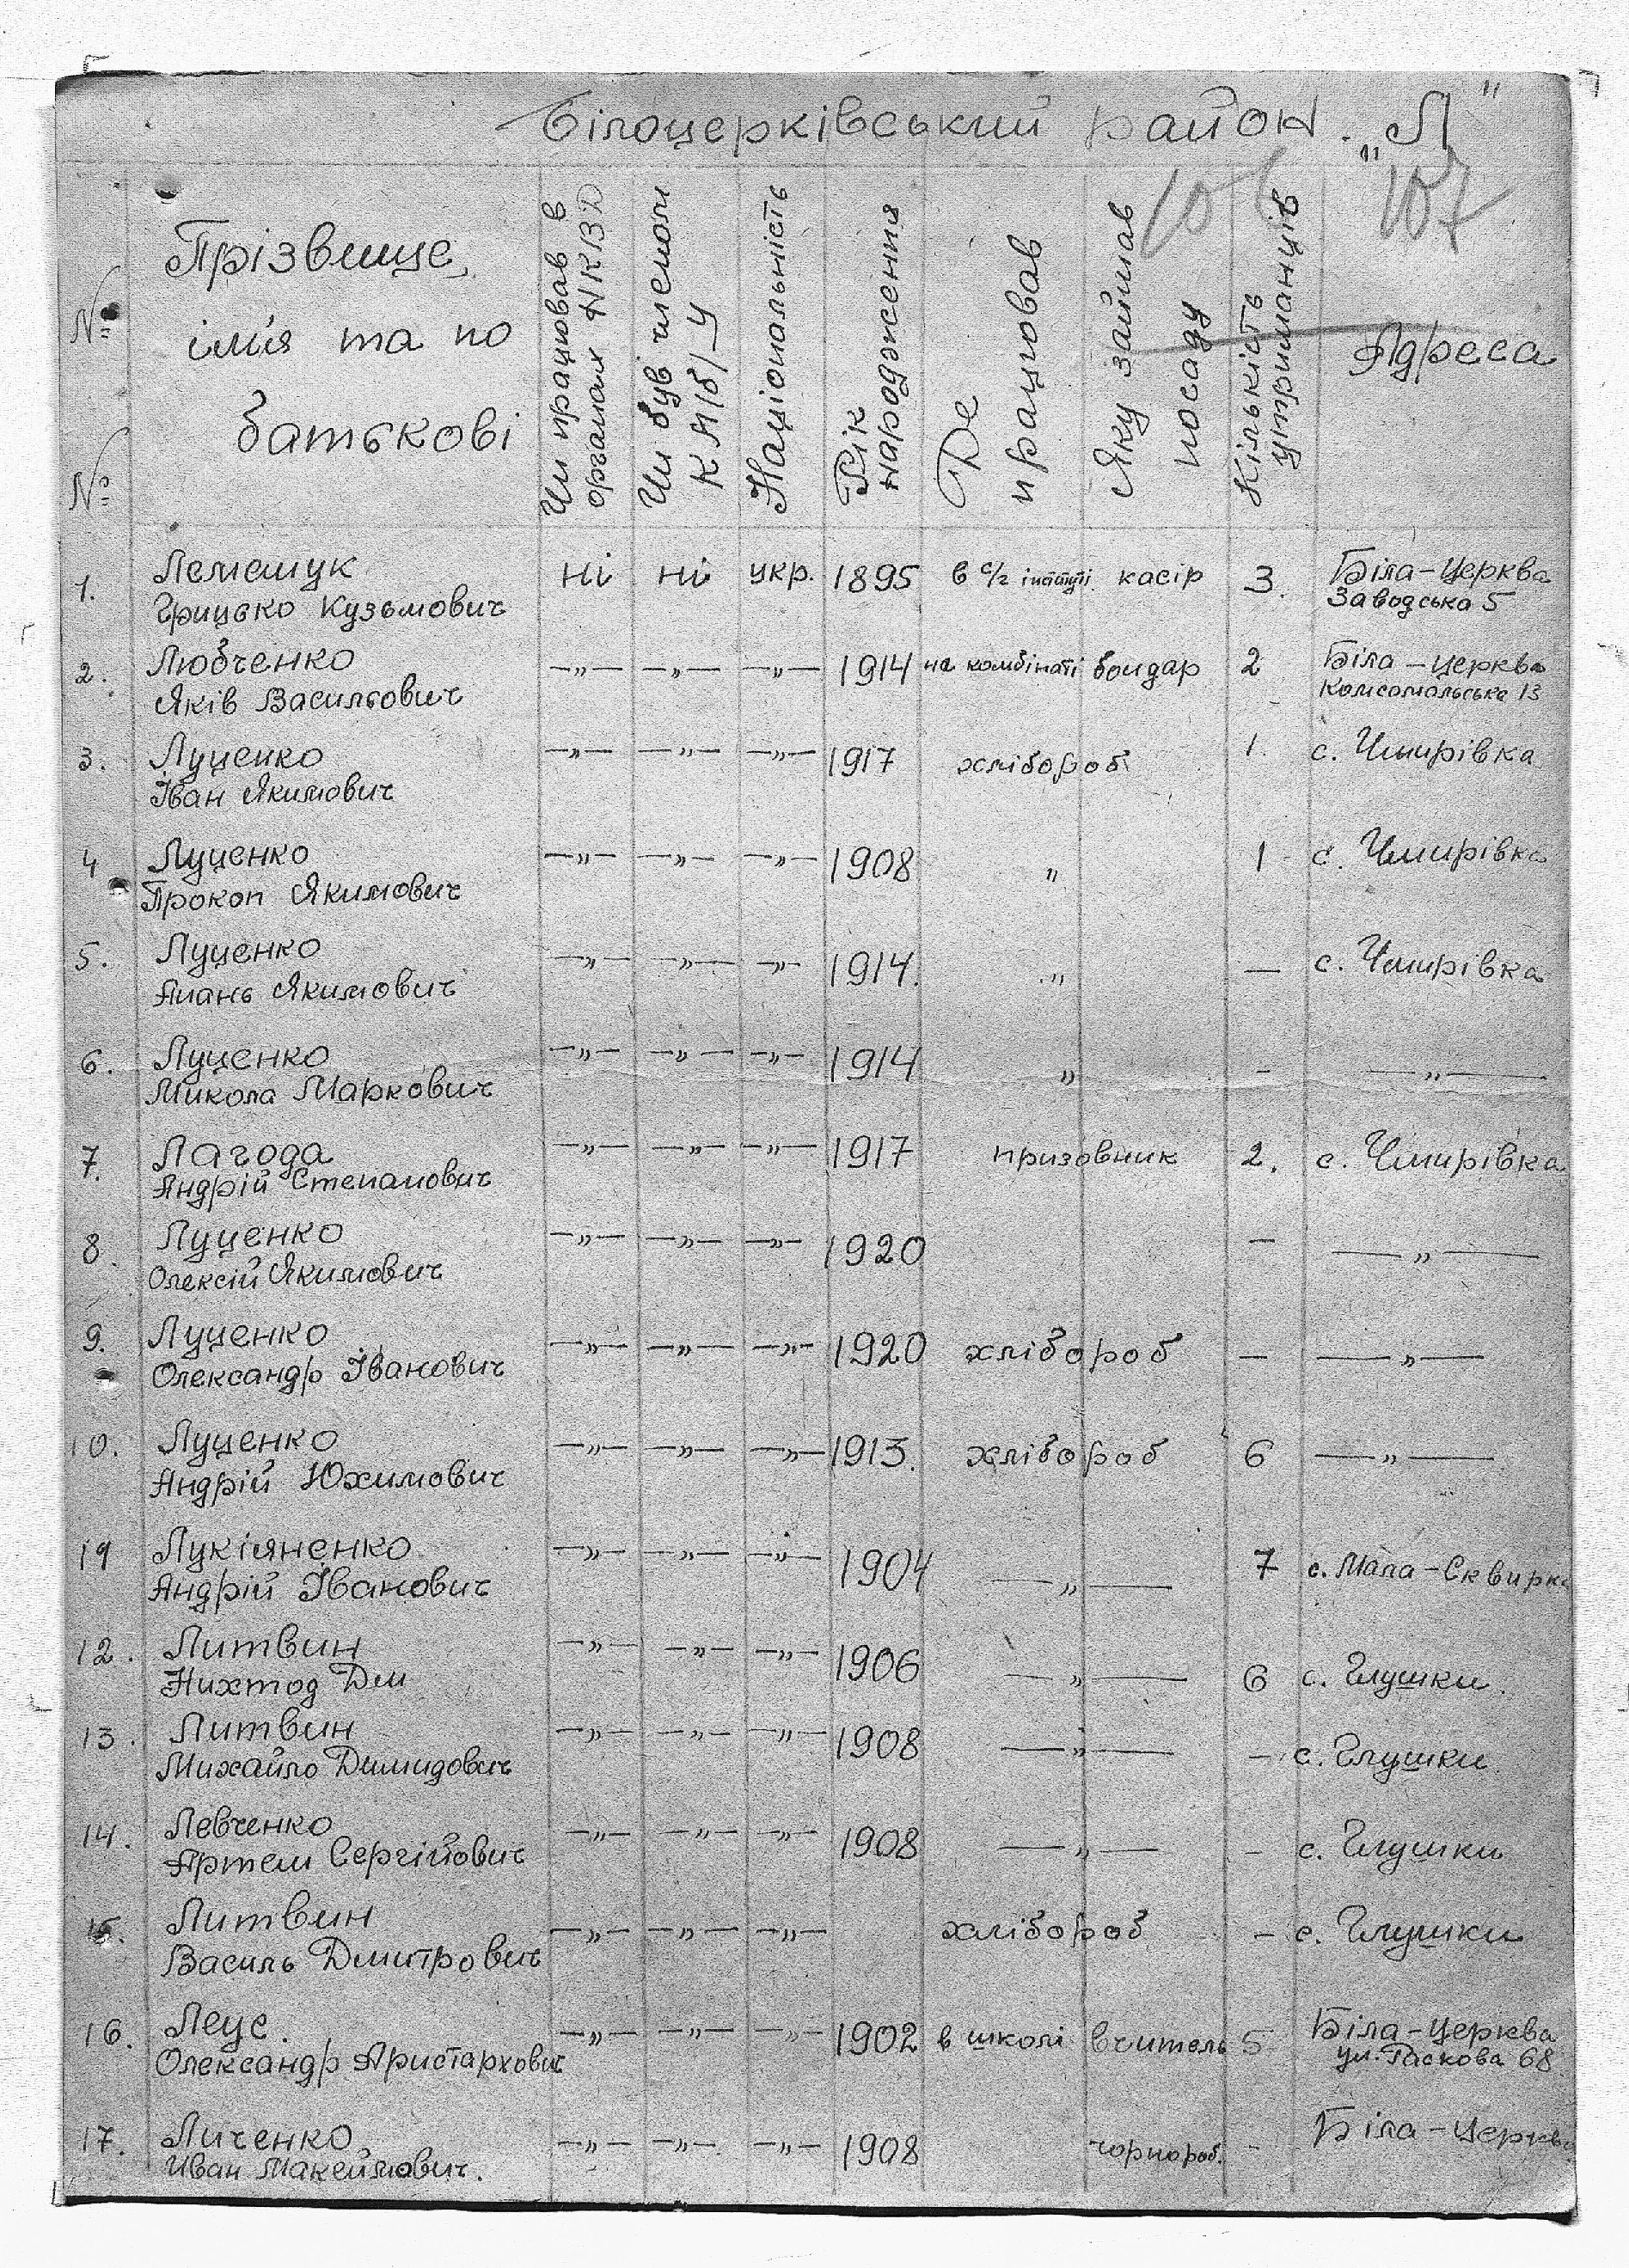 Білоцерківський район. „Л"
106 107
№ №
Прізвище, ім'я та по батькові
Чи працював в органах НКВД
Чи був членом КП(б)У
Національність
Рік народження
Де працював
Яку займав посаду
Кількість утриманців
Адреса
1. Лемешук ні ні укр. 1895 в с/г інстітуті касір 3. Біла-Церква
Грицько Кузьмович Заводська 5
2. Любченко —„— —„— —„— 1914 на комбінаті бондар 2 Біла-Церква
Яків Васильович Комсомольська 13
3. Луценко —„— —„— —„— 1917 хлібороб 1. с. Чмирівка
Іван Якимович
4 Луценко —„— —„— —„— 1908 „ 1 с. Чмирівка
Прокоп Якимович
5. Луценко —„— —„— —„— 1914. „ — с. Чмирівка
Якимович
6. Луценко —„— —„— —„— 1914 „ – —„—
Микола Маркович
7. Лагода —„— —„— —„— 1917 призовник 2. с. Чмирівка
Андрій Степанович
8. Луценко —„— —„— —„— 1920 — —„—
Олексій Якимович
9. Луценко —„— —„— —„— 1920 хлібороб — —„—
Олександр Іванович
10. Луценко —„— —„— —„— 1913. хлібороб 6 —„—
Андрій Юхимович
19 Лукіяненко —„— —„— —„— 1904 —„— 7 с. Мала-Сквирка
Андрій Іванович
12. Литвин —„— —„— —„— 1906 —„— 6 с. Глушки.
Дем
13. Литвин —„— —„— —„— 1908 —„— – с. Глушки
Михайло Димидович
14. Левченко —„— —„— —„— 1908 —„— – с. Глушки
Артем Сергійович
15. Литвин —„— —„— —„— хлібороб – с. Глушки
Василь Дмитрович
16. Леус. —„— —„— —„— 1902 в школі вчитель 5 Біла-Церква
Олександр Аристархович ул. Раскова 68
17. Личенко —„— —„— —„— 1908 чорнороб. – Біла-Церква
Иван Макеймович.